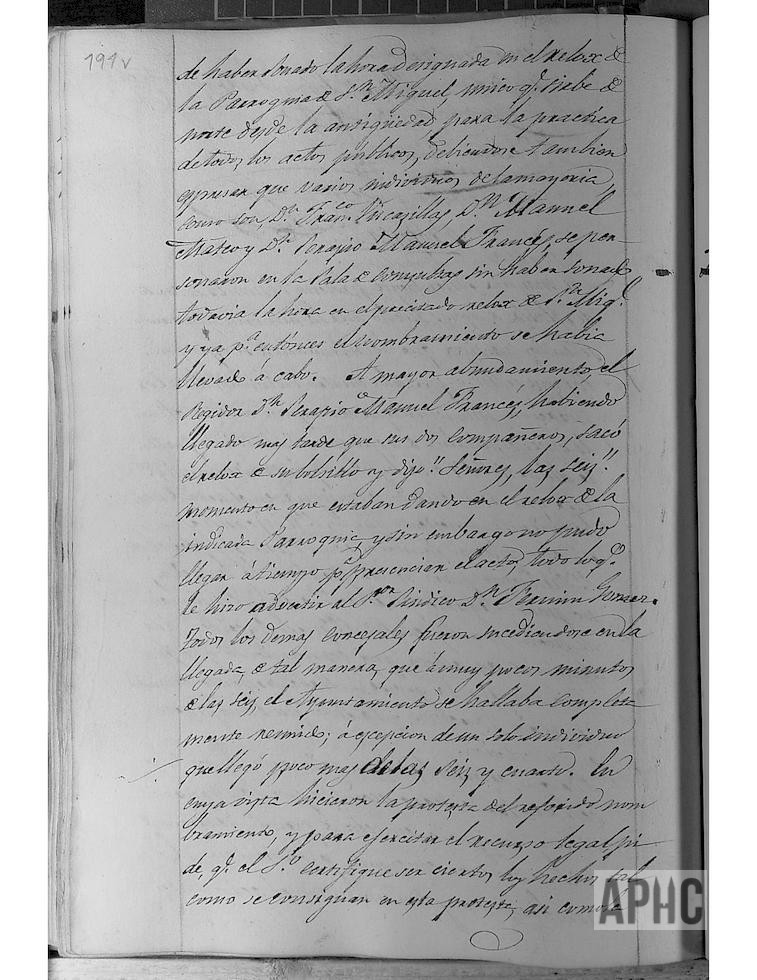 191v
de haber sonado la hora designada en el relox de
la Parroquia de Sn. Miguel, unico qe. sirbe de
norte desde la antigüedad, para la practica
de todos los actos publicos, debiendose tambien
espresar que varios individuos de la mayoria,
como son, Dn. Franco. Vicasillas, Dn. Manuel
Mateo y Dn. Serapio Manuel Francés, se per-
sonaron en la Sala de Consultas sin haber sonado
todavia la hora en el precitado relox de Sn. Migl.
y ya pa. entónces el nombramiento se habia
llevado á cabo. A mayor abundamiento, el
Regidor Dn. Serapio Manuel Francés, habiendo
llegado mas tarde que sus dos compañeros, sacó
el relox de su bolsillo y dijo "Señores, las seis".
momento en que estaban dando en el relox de la
indicada Parroquia, y sin embargo no pudo
llegar á tiempo pa. presenciar el acto; todo lo qe.
le hizo advertir al Sor. Sindico Dn. Fermin
Todos los demas concejales fueron sucediendose en la
llegada, de tal manera, que á muy pocos minutos
de las seis, el Ayuntamiento se hallaba completa
mente reunido; á escepcion de un solo individuo
que llegó poco mas de las seis y cuarto. En
cuya vista hicieron la protesta del referido nom
bramiento, y para ejercitar el recurso legal, pi
de, qe. el So. certifique ser ciertos los hechos tal
como se consignan en esta protesta, asi como
APHC